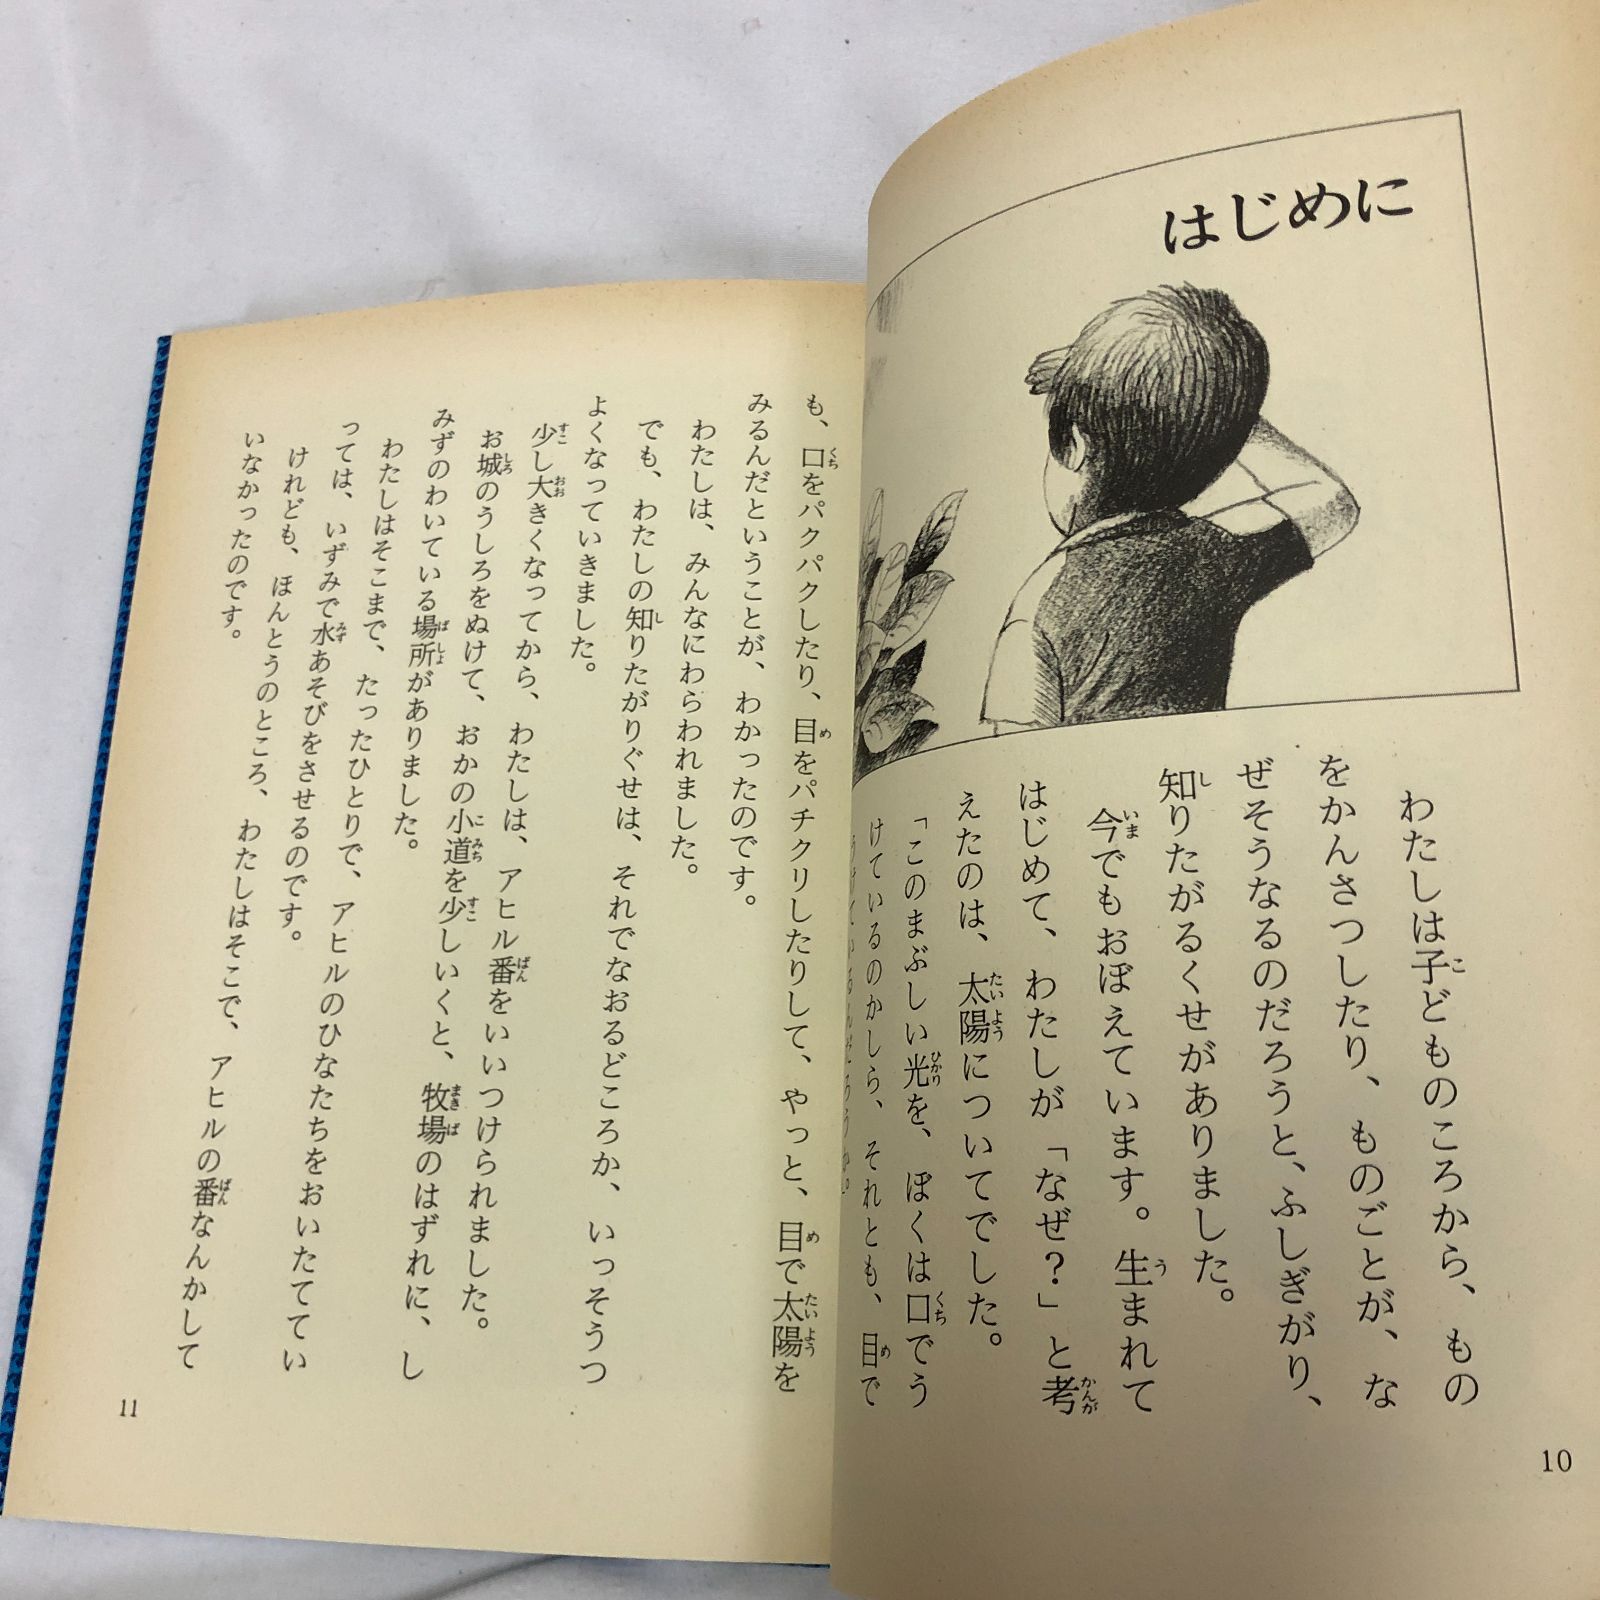 はじめに
わたしは子どものころから、もの
をかんさつしたり、ものごとが、な
ぜそうなるのだろうと、ふしぎがり、
知りたがるくせがありました。
今でもおぼえています。生まれて
はじめて、わたしが「なぜ?」と考
えたのは、太陽についてでした。
「このまぶしい光を、ぼくは口でう
けているのかしら、それとも、目で
うけているんだろうか。」
10
も、口をパクパクしたり、目をパチクリしたりして、やっと、目で太陽を
みるんだということが、わかったのです。
わたしは、みんなにわらわれました。
でも、わたしの知りたがりぐせは、それでなおるどころか、いっそうつ
よくなっていきました。
少し大きくなってから、わたしは、アヒル番をいいつけられました。
お城のうしろをぬけて、おかの小道を少しいくと、牧場のはずれに、し
みずのわいている場所がありました。
わたしはそこまで、たったひとりで、アヒルのひなたちをおいたててい
っては、いずみで水あそびをさせるのです。
けれども、ほんとうのところ、わたしはそこで、アヒルの番なんかして
いなかったのです。
11